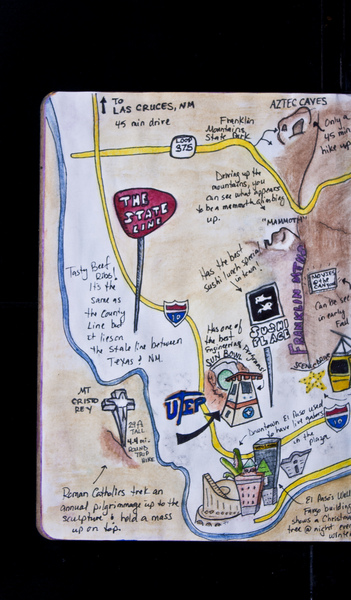 TO
LAS CRUCES, NM
45 min drive
AZTEC CAVES
Only a
45 min
hike up
Franklin
Mountains
State Park
LOOP
375
Driving up the
mountains, you
can see what appears
to be a mammoth climbing
up.
"MAMMOTH"
THE
STATE
LINE
Has the best
sushi lunch special
in town!
FRANKLIN MTNS
MOVIES
IN THE
CANYON
Can be seen
in early
Fall
Tasty Beef
Ribs!
It's the
same as
the County
Line but
it lies on
the State line between
Texas & NM.
10
SUSHI
PLACE
Has one of
the best
Engineering Programs
SUN BOWL
UTEP
MT
CRISTO
REY
29 ft
TALL
4.4 mi.
ROUND
TRIP
HIKE
Downtown El Paso used
to have live gators
in the plaza
10
Roman Catholics trek an
annual pilgrimmage up to the
sculpture & hold a mass
up on top.
El Paso's Wells
Fargo building
shows a Christmas
tree @ night every
winter